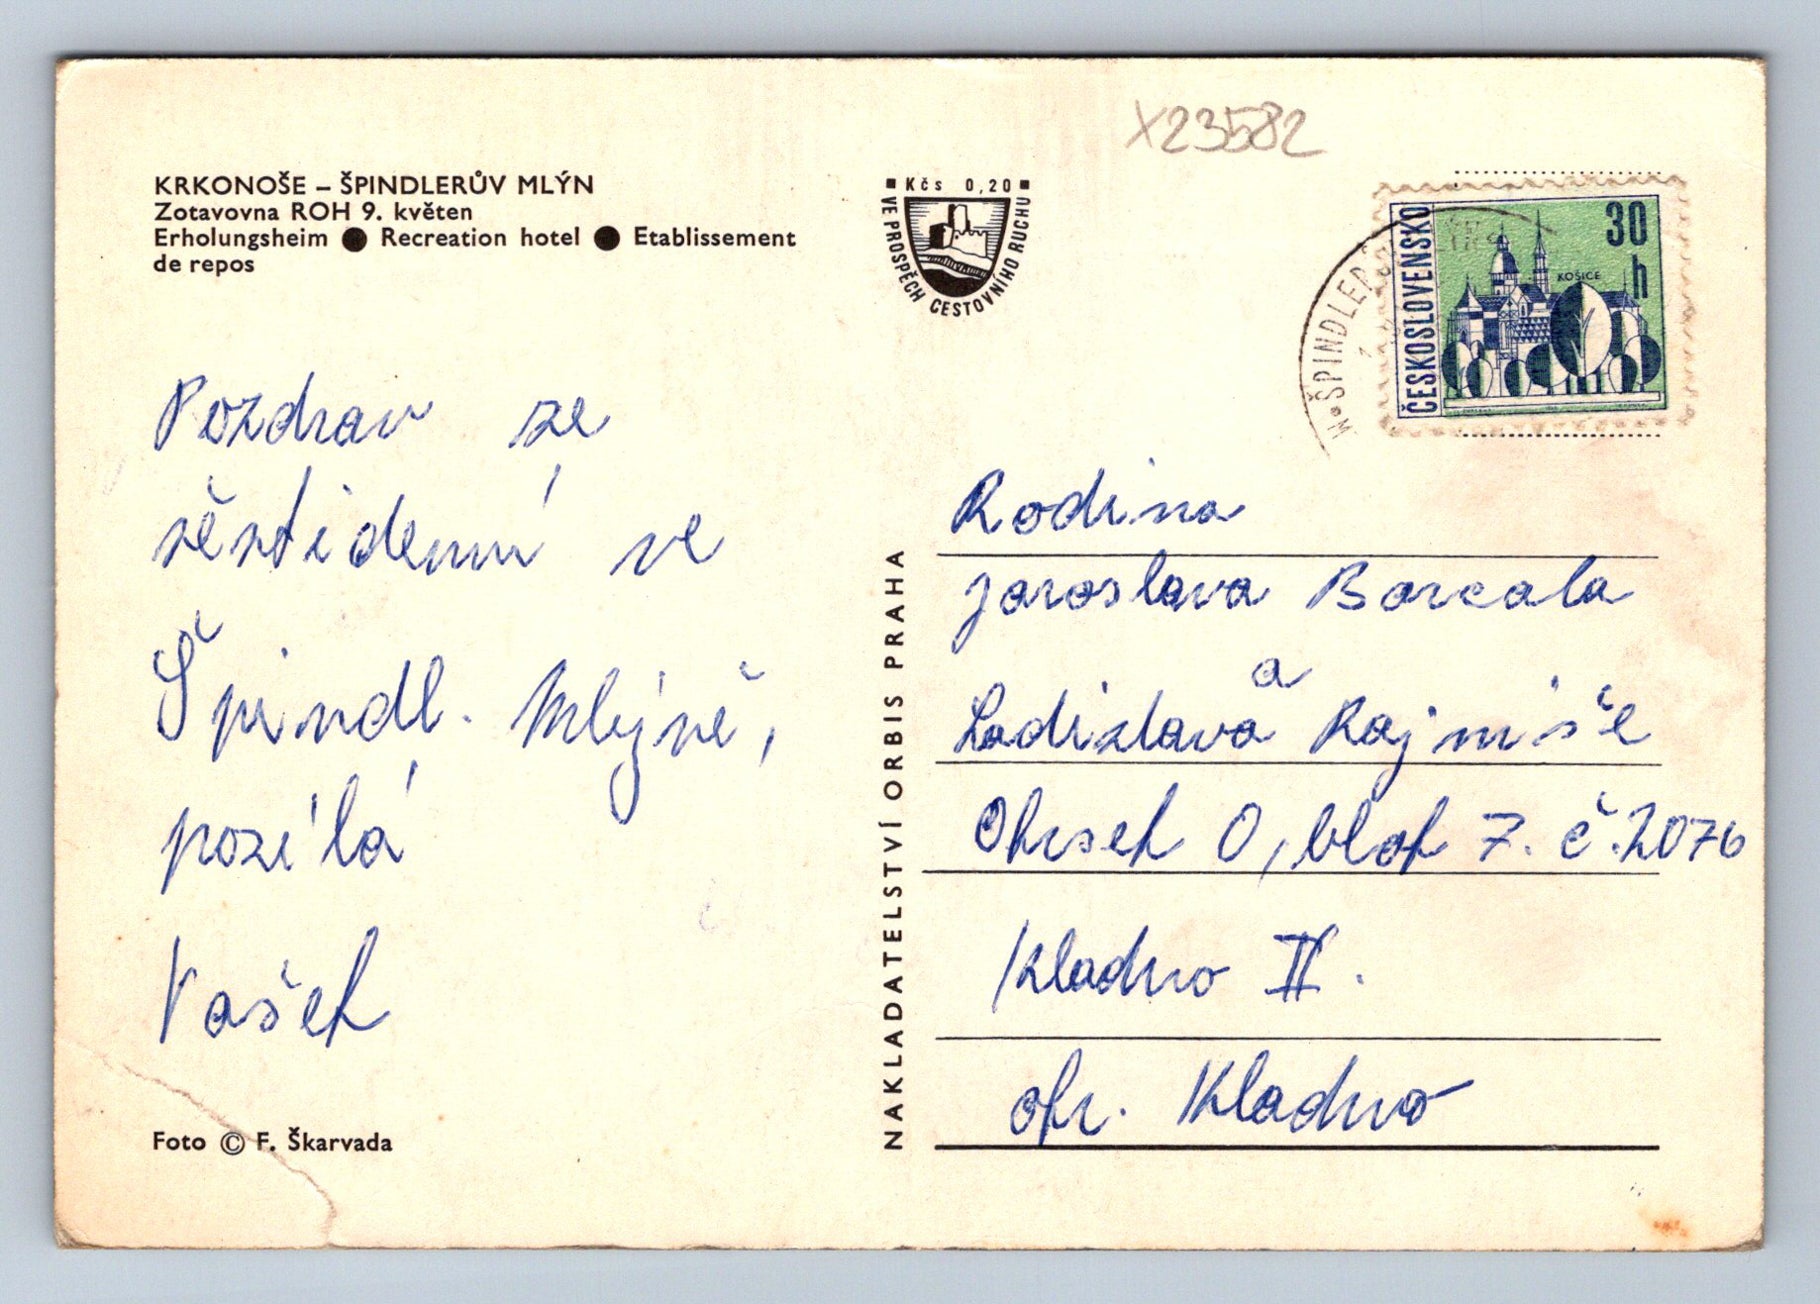 X23582
KRKONOŠE – ŠPINDLERŮV MLÝN
Zotavovna ROH 9. květen
Erholungsheim ● Recreation hotel ● Etablissement
de repos
Kčs 0,20
VE PROSPĚCH CESTOVNÍHO RUCHU
ČESKOSLOVENSKO
30
h
KOŠICE
Pozdrav ze
ve
Špindl. Mlýně,
posílá
Vašek
Foto © F. Škarvada
NAKLADATELSTVÍ ORBIS PRAHA
Rodina
Jaroslava Barcala
a
Ladislava Rajniše
O, blok 7. č. 2076
Kladno II.
okr. Kladno